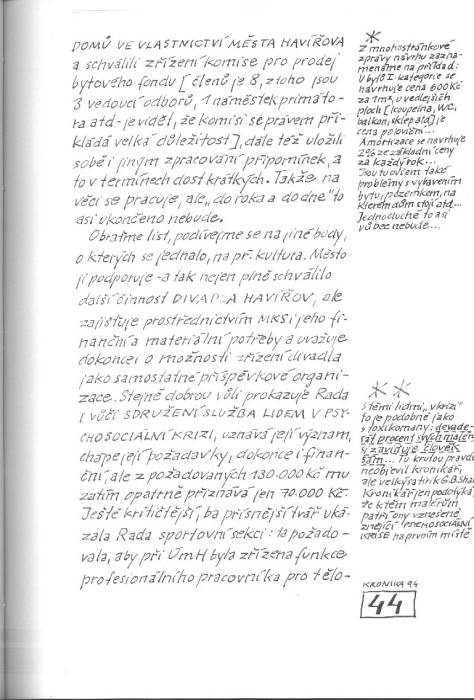 DOMŮ VE VLASTNICTVÍ MĚSTA HAVÍŘOVA
a schválili zřízení komise pro prodej
bytového fondu [členů je 8, z toho jsou
3 vedoucí odborů, 1 náměstek primáto-
ra atd.- je vidět, že komisi se právem při-
kládá velká důležitost], dále též uložili
sobě i jiným zpracování připomínek, a
to v termínech dost krátkých. Takže na
věci se pracuje, ale „do roka a do dne" to
asi ukončeno nebude.
Obraťme list, podívejme se na jiné body,
o kterých se jednalo, na př. kultura. Město
ji podporuje - a tak nejen plně schválilo
další činnost DIVADLA HAVÍŘOV, ale
zajišťuje prostřednictvím MKS i jeho fi-
nanční a materiální potřeby a uvažuje
dokonce i o možnosti zřízení divadla
jako samostatné příspěvkové organi-
zace. Stejně dobrou vůli prokazuje Rada
i vůči SDRUŽENÍ SLUŽBA LIDEM V PSY-
CHOSOCIÁLNÍ KRIZI, uznává její význam,
chápe její požadavky, dokonce i finan-
ční, ale z požadovaných 130.000 Kč mu
zatím opatrně přiznává jen 70.000 Kč.
Ještě kritičtější, ba přísnější tvář uká-
zala Rada sportovní sekci: ta požado-
vala, aby při ÚmH byla zřízena funkce
profesionálního pracovníka pro tělo-
*
Z mnohostránkové
zprávy návrhu zazna-
menáme na příklad:
U bytů I. kategorie se
navrhuje cena 600 Kč
za 1 m², u vedlejších
ploch [koupelna, WC,
balkon, sklep atd.] je
cena poloviční...
Amortizace se navrhuje
2% ze základní ceny
za každý rok...
Jsou tu ovšem také
problémy s vybavením
bytu, pozemkem, na
kterém dům stojí atd...
Jednoduché to asi
vůbec nebude...
**
S těmi lidmi „v krizi"
to je podobné jako
s toxikomany: devade-
sát procent svých malérů
si zaviňuje člověk
sám... Tu krutou pravdu
neobjevil kronikář,
ale velký satirik G.B. Sha
Kronikář jen podotýká,
že k těm malérům
patří ony vznešeně
znějící PSYCHOSOCIÁLNÍ
KRISE na prvním místě
KRONIKA 94
44